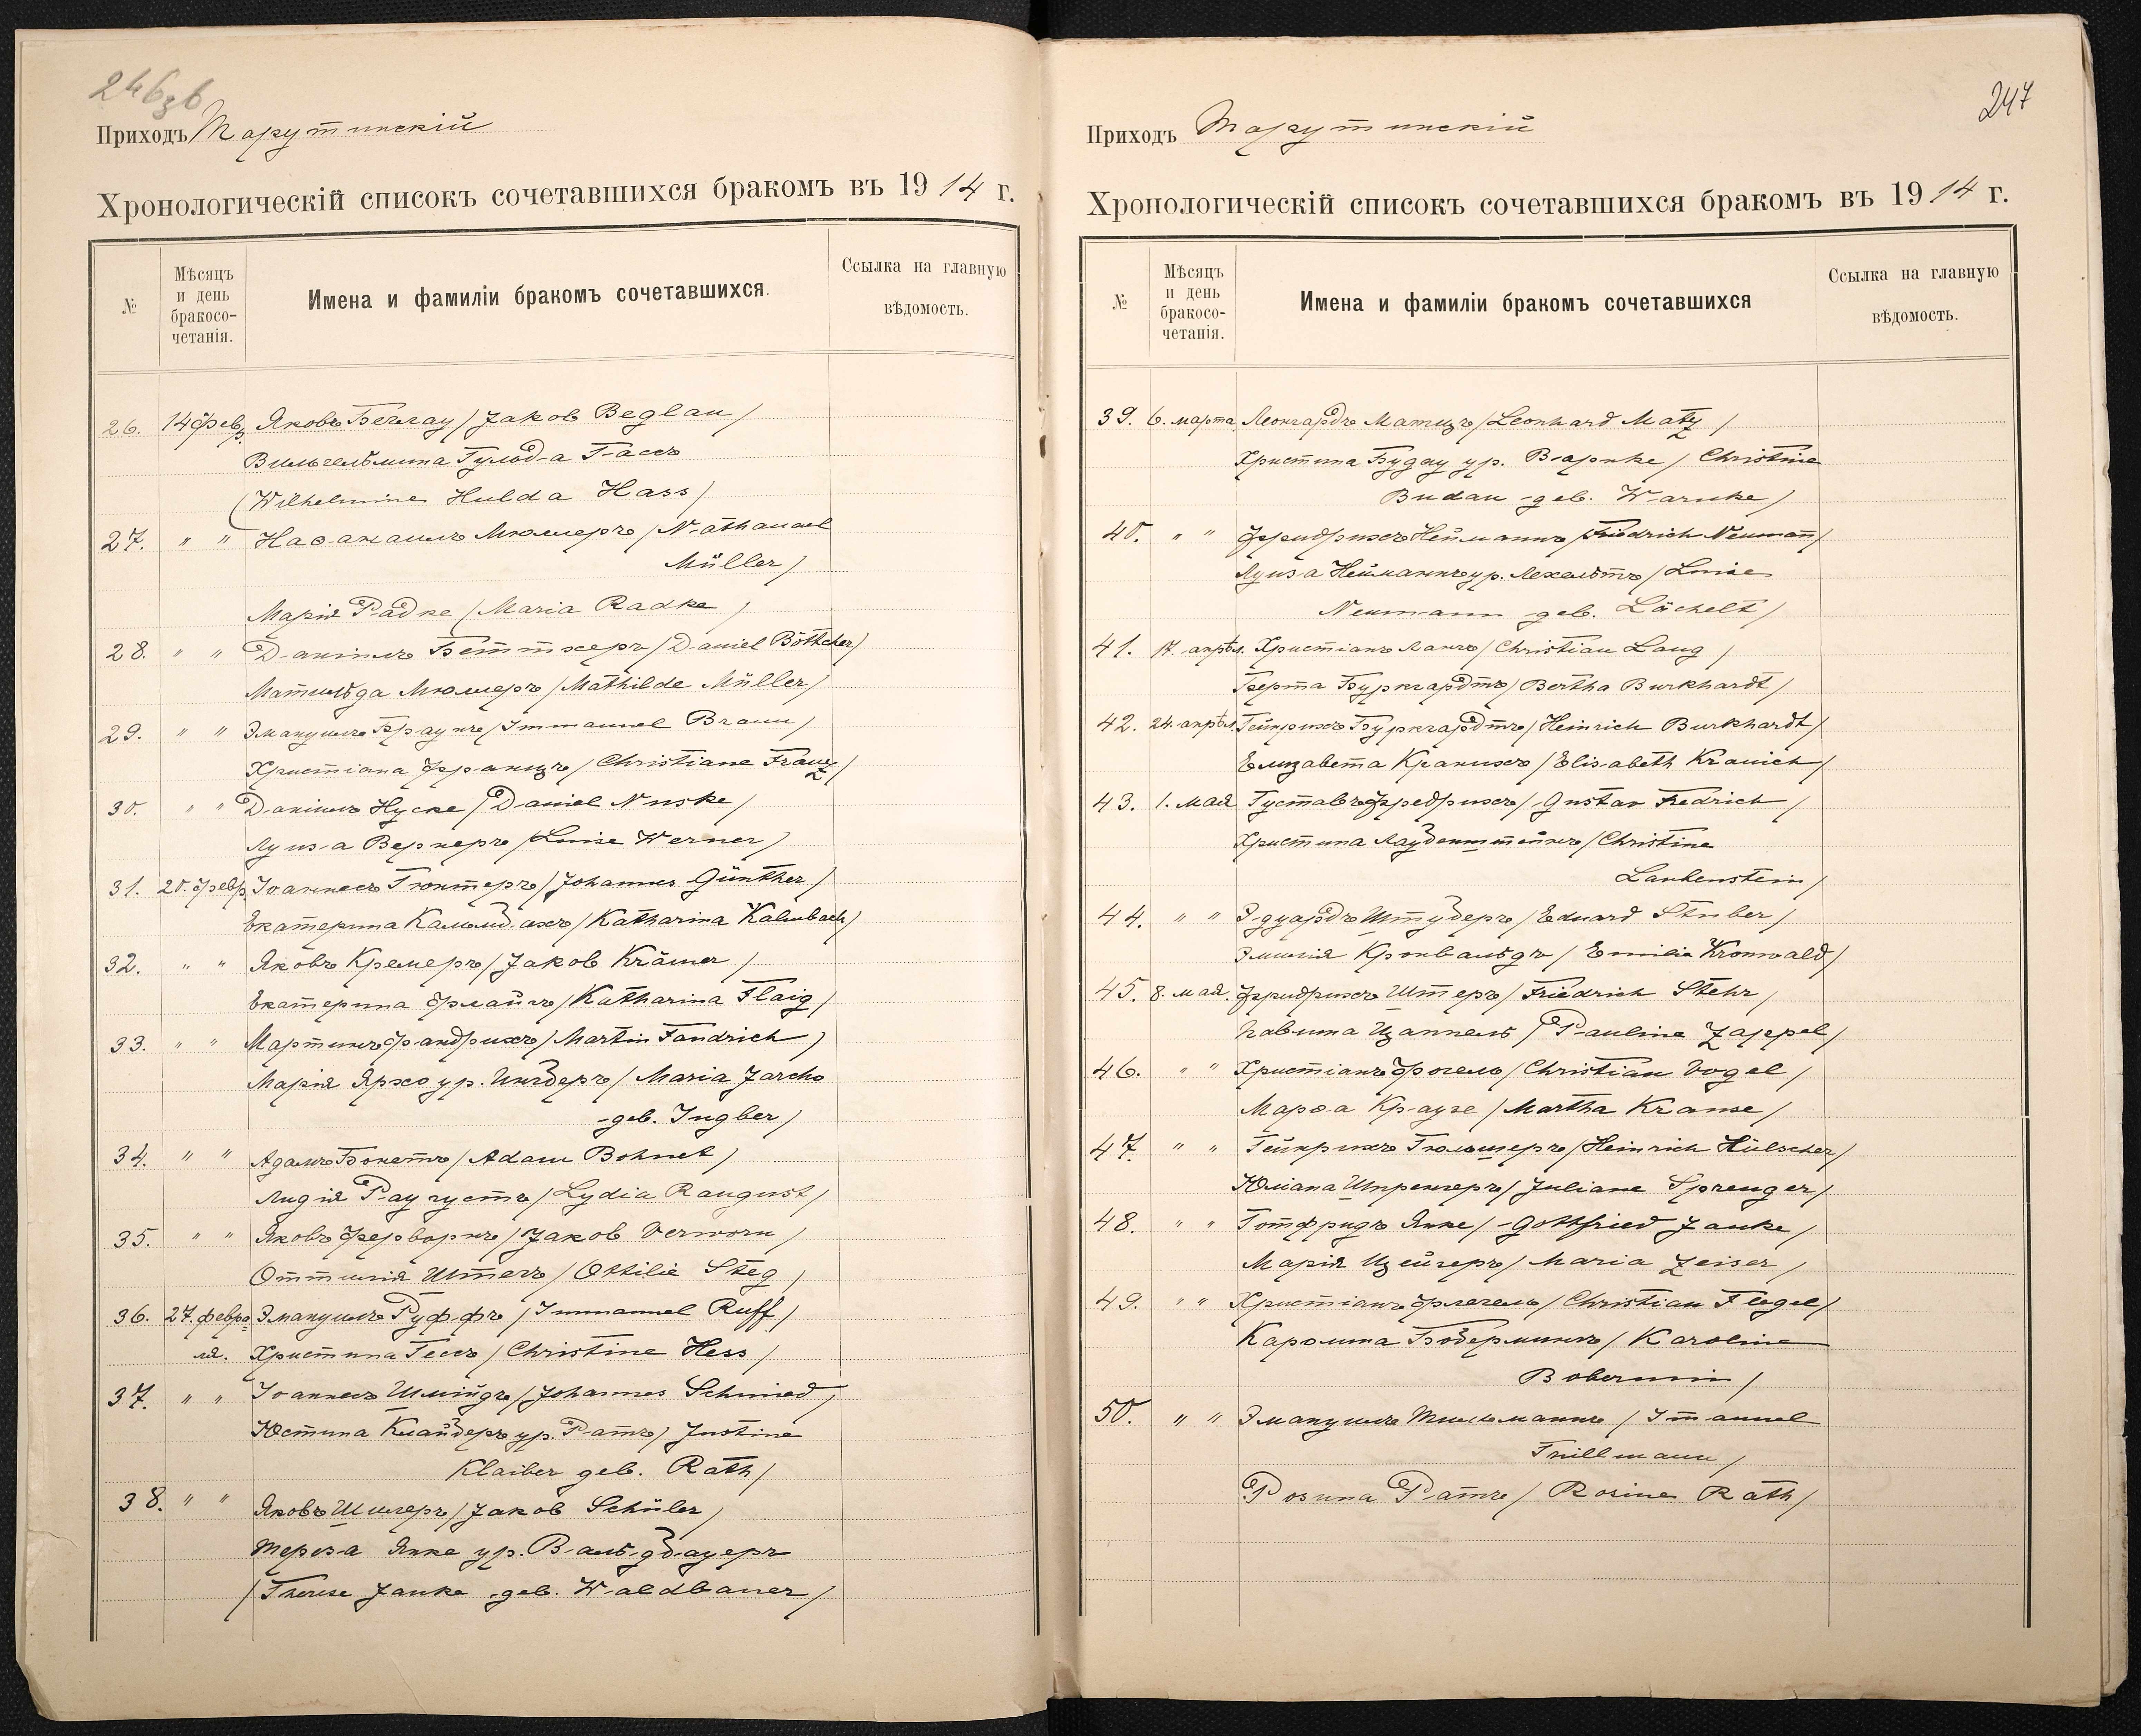 246 зб
Приходъ Тарутинскій
Хронологическій списокъ сочетавшихся бракомъ въ 1914 г.
№
Мѣсяцъ и день бракосо-четанія.
Имена и фамиліи бракомъ сочетавшихся.
Ссылка на главную вѣдомость.
26. 14 февр. Яковъ Беглау /Jakob Beglau/
Вильгельмина Гульда Гассъ
(Wilhelmine Hulda Hass/
27. " " Наѳанаилъ Мюллеръ /Nathanael
Müller/
Марія Радке /Maria Radke/
28. " " Даніилъ Беттхеръ /Daniel Böttcher/
Матильда Мюллеръ /Mathilde Müller/
29. " " Эмануилъ Браунъ /Immanuel Braun/
Христіана Францъ /Christiane Franz/
30. " " Даніилъ Нуске /Daniel Nuske/
Луиза Вернеръ /Luise Werner/
31. 20. февр. Іоаннесъ Гюнтеръ /Johannes Günther/
Екатерина Кальмбахъ /Katharina Kalmbach/
32. " " Яковъ Кремеръ /Jakob Krämer/
Екатерина Флайгъ /Katharina Flaig/
33. " " Мартинъ Фандрихъ /Martin Fandrich/
Марія Ярхо ур. Ингберъ /Maria Jarcho
geb. Ingber/
34. " " Адамъ Бонетъ /Adam Bohnet/
Лидія Раугустъ /Lydia Raugust/
35. " " Яковъ Ферворнъ /Jakob Verworn/
Оттилія Штегъ /Ottilie Steg/
36. 27. февра- Эмануилъ Руффъ /Immanuel Ruff/
ля. Христина Гессъ /Christine Hess/
37. " " Іоаннесъ Шмидъ /Johannes Schmied/
Юстина Клайберъ ур. Ратъ /Justine
Klaiber geb. Rath/
38. " " Яковъ Шилеръ /Jakob Schüler/
Тереза Янке ур. Вальдбауеръ
/Therese Janke geb. Waldbauer/
247
Приходъ Тарутинскій
Хронологическій списокъ сочетавшихся бракомъ въ 1914 г.
№
Мѣсяцъ и день бракосо-четанія.
Имена и фамиліи бракомъ сочетавшихся
Ссылка на главную вѣдомость.
39. 6. марта Леонгардъ Матцъ /Leonhard Matz/
Христина Будау ур. Варнке /Christine
Budau geb. Warnke/
40. " " Фридрихъ Нейманнъ /Friedrich Neumann/
Луиза Нейманнъ ур. Лехельтъ /Luise
Neumann geb. Lächelt/
41. 17. апрѣл. Христіанъ Лангъ /Christian Lang/
Берта Бургардтъ /Bertha Burkhardt/
42. 24. апрѣл. Гейнрихъ Бургардтъ /Heinrich Burkhardt/
Елизавета Кранихъ /Elisabeth Kranich/
43. 1. мая Густавъ Фредрихъ /Gustav Fredrich/
Христина Лаубенштейнъ /Christine
Laubenstein/
44. " " Эдуардъ Штуберъ /Eduard Stuber/
Эмилія Кронвальдъ /Emilia Kronwald/
45. 8. мая. Фридрихъ Штеръ /Friedrich Stehr/
Павлина Цаппель /Pauline Zappel/
46. " " Христіанъ Фогель /Christian Vogel/
Марѳа Краузе /Martha Krause/
47. " " Гейнрихъ Гюльшеръ /Heinrich Hülscher/
Юліана Шпренгеръ /Juliane Sprenger/
48. " " Готфридъ Янке /Gottfried Janke/
Марія Цейзеръ /Maria Zeiser/
49. " " Христіанъ Флегель /Christian Flegel/
Каролина Боберминъ /Karoline
Bobermin/
50. " " Эмануилъ Тильманнъ /Imanuel
Trillmann/
Розина Ратъ /Rosine Rath/